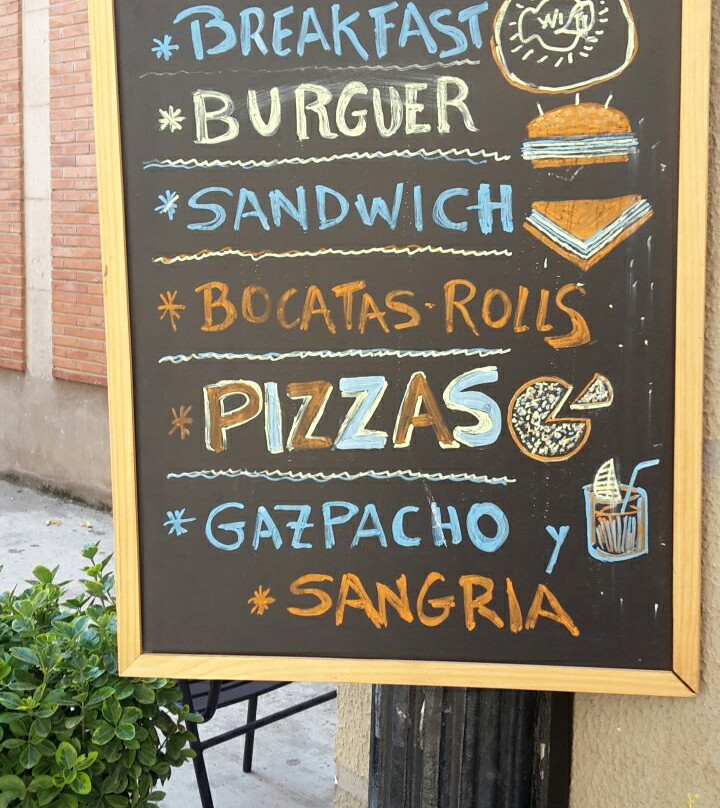 * BREAKFAST
WIFI
* BURGUER
* SANDWICH
* BOCATAS-ROLLS
* PIZZAS
* GAZPACHO y
* SANGRIA